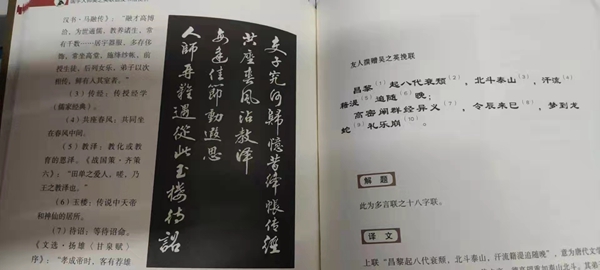 汉书·马融传》：“融才高博
洽，为世通儒，教养诸生，常
有千数……居宇器服，多存侈
饰。常坐高堂，施绛纱帐，前
授生徒，后列女乐，弟子以次
相传，鲜有入其室者。”
（3）传经：传授经学
（儒家经典）。
（4）共座春风：共同坐
在春风中间。
（5）教泽：教化或教
育的恩泽。《战国策·齐策
六》：“田单之爱人，嗟，乃
王之教泽也。”
（6）玉楼：传说中天帝
和神仙的居所。
（7）待诏：等待诏命。
《文选·扬雄〈甘泉赋〉
序》：“孝成帝时，客有荐雄
夫子究何歸憶昔絳帳傳經
共座春風沾教澤
每逢佳節動遐思
人師再難遇從此玉樓待詔
友人撰赠吴之英挽联
昌黎（1）起八代衰颓（2），北斗泰山，汗流
籍湜追随晚；
高密阐群经异义，令辰来巳，梦到龙
蛇礼乐崩。
解 题
此为多言联之十八字联。
译 文
上联“昌黎起八代衰颓，北斗泰山，汗流籍湜追随晚”，意为唐代文学